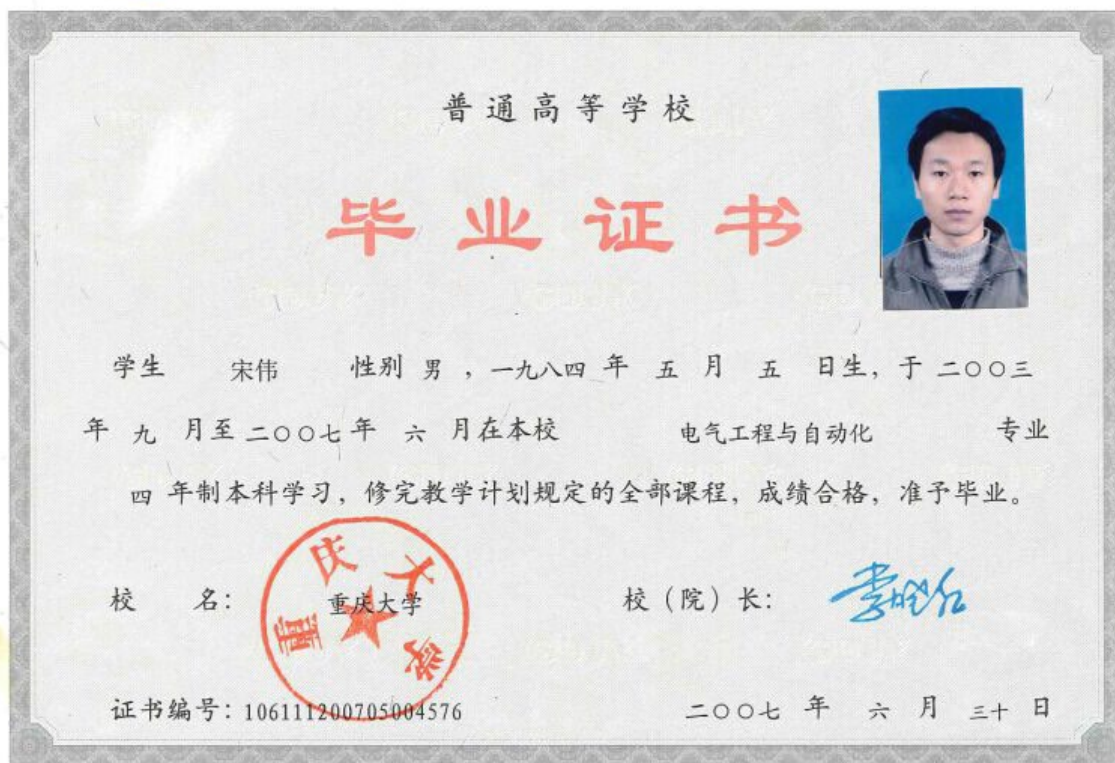 普通高等学校
毕业证书
学生 宋伟 性别 男 ，一九八四 年 五 月 五 日生，于 二〇〇三
年 九 月至 二〇〇七 年 六 月在本校 电气工程与自动化 专业
四 年制本科学习，修完教学计划规定的全部课程，成绩合格，准予毕业。
校 名： 重庆大学 校（院）长： 李晓红
重庆大学
证书编号：106111200705004576 二〇〇七 年 六 月 三十 日